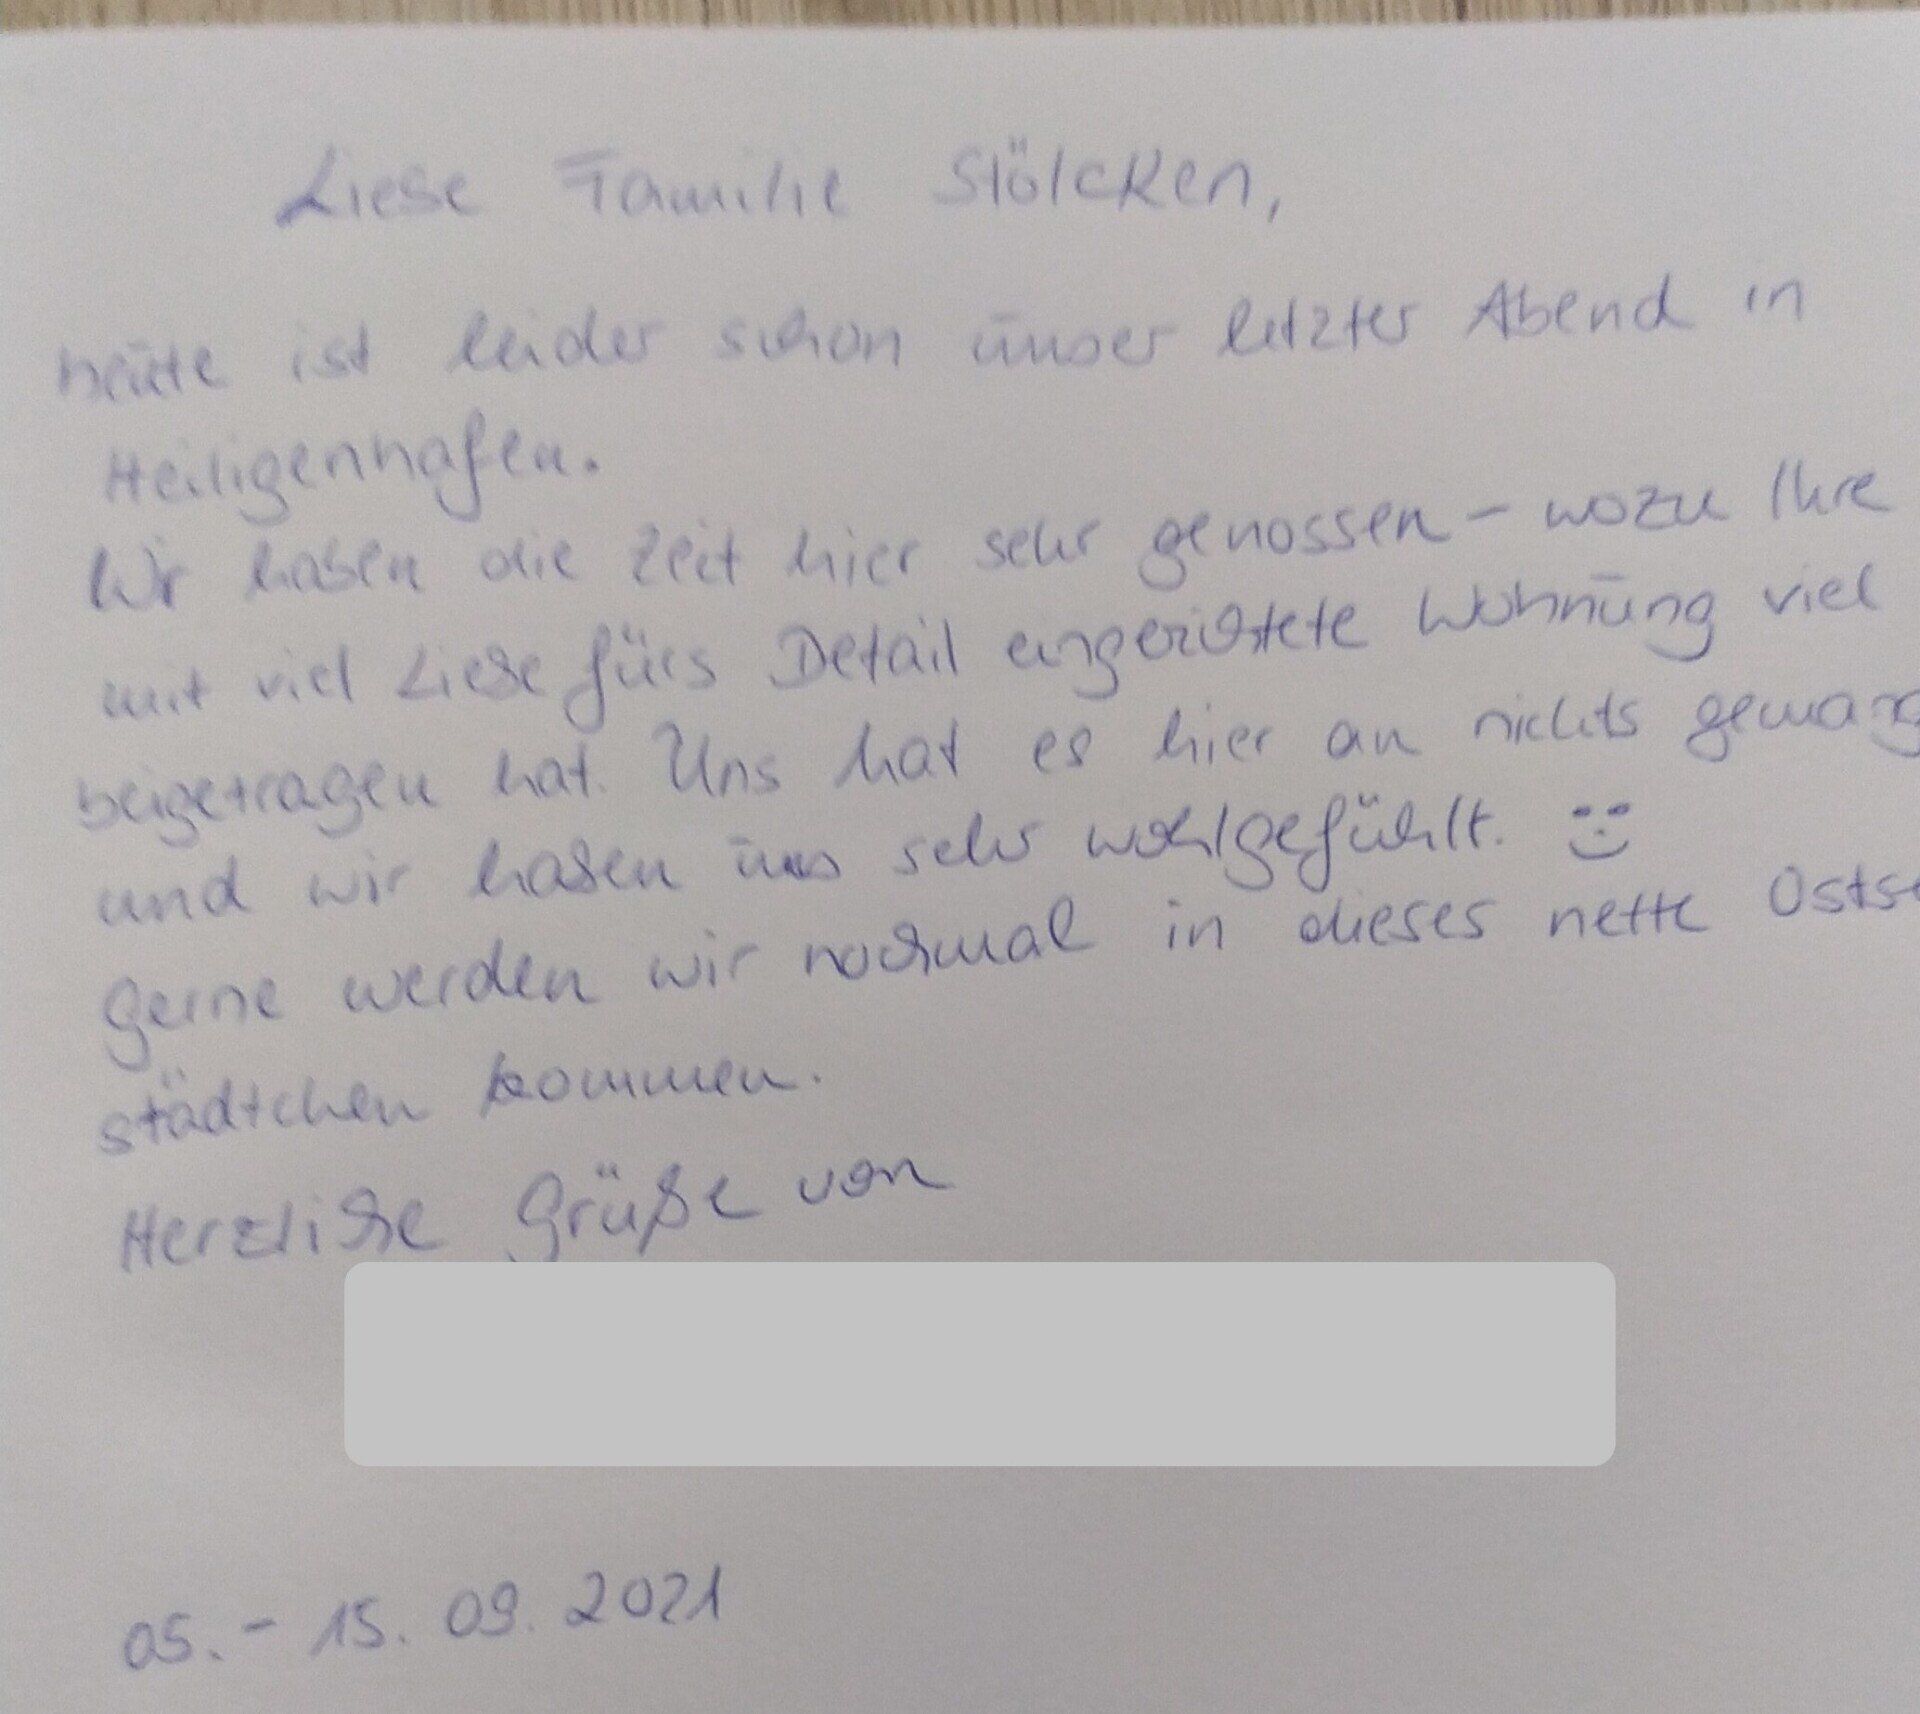 Liebe Familie Stölcken,
heute ist leider schon unser letzter Abend in
Heiligenhafen.
Wir haben die Zeit hier sehr genossen – wozu Ihre
mit viel Liebe fürs Detail eingerichtete Wohnung viel
beigetragen hat. Uns hat es hier an nichts gemang
und wir haben uns sehr wohlgefühlt. :-)
Gerne werden wir nochmal in dieses nette Ostse
städtchen kommen.
Herzliche Grüße von
05. – 15. 09. 2021